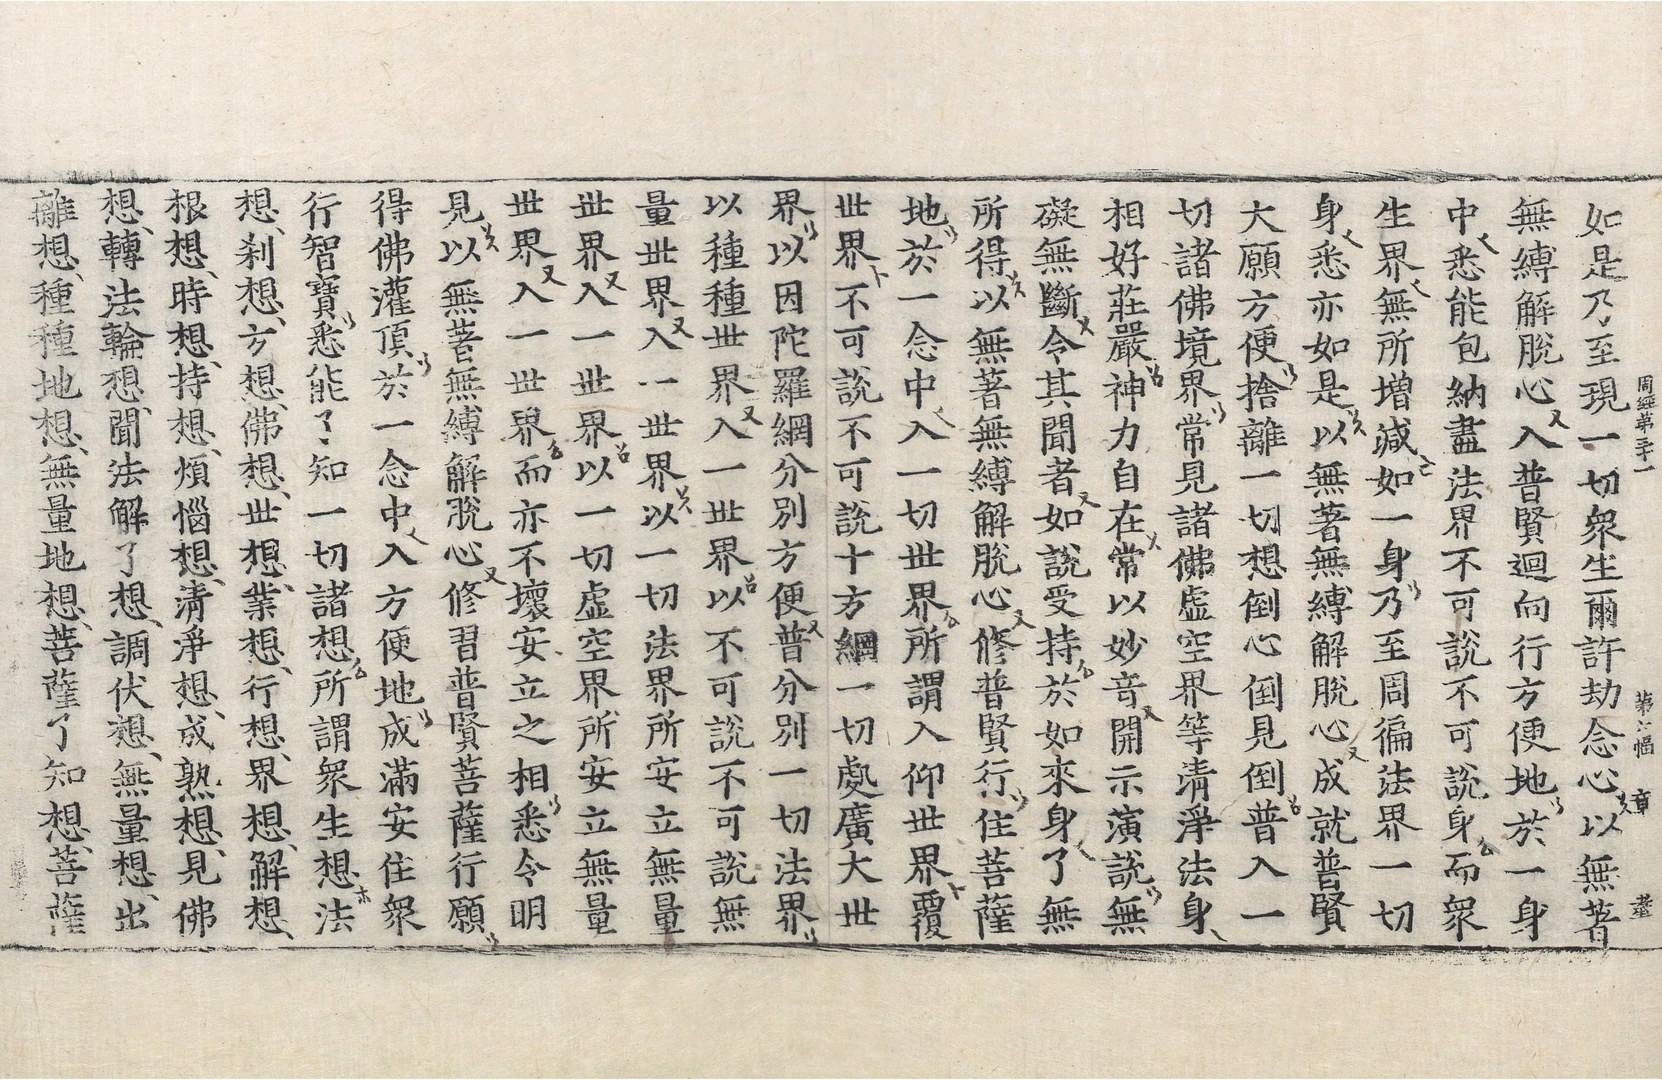 周經第三十一 第六幅 章
如是乃至現一切衆生爾許劫念心以無著
無縛解脫心入普賢迴向行方便地於一身
中悉能包納盡法界不可說不可說身而衆
生界無所增減如一身乃至周徧法界一切
身悉亦如是以無著無縛解脫心成就普賢
大願方便捨離一切想倒心倒見倒普入一
切諸佛境界常見諸佛虛空界等淸淨法身
相好莊嚴神力自在常以妙音開示演說無
礙無斷令其聞者如說受持於如來身了無
所得以無著無縛解脫心修普賢行住菩薩
地於一念中入一切世界所謂入仰世界覆
世界不可說不可說十方網一切處廣大世
界以因陀羅網分別方便普分別一切法界
以種種世界入一世界以不可說不可說無
量世界入一世界以一切法界所安立無量
世界入一世界以一切虛空界所安立無量
世界入一世界而亦不壞安立之相悉令明
見以無著無縛解脫心修習普賢菩薩行願
得佛灌頂於一念中入方便地成滿安住衆
行智寶悉能了知一切諸想所謂衆生想法
想刹想方想佛想世想業想行想界想解想
根想時想持想煩惱想淸淨想成熟想見佛
想轉法輪想聞法解了想調伏想無量想出
離想種種地想無量地想菩薩了知想菩薩